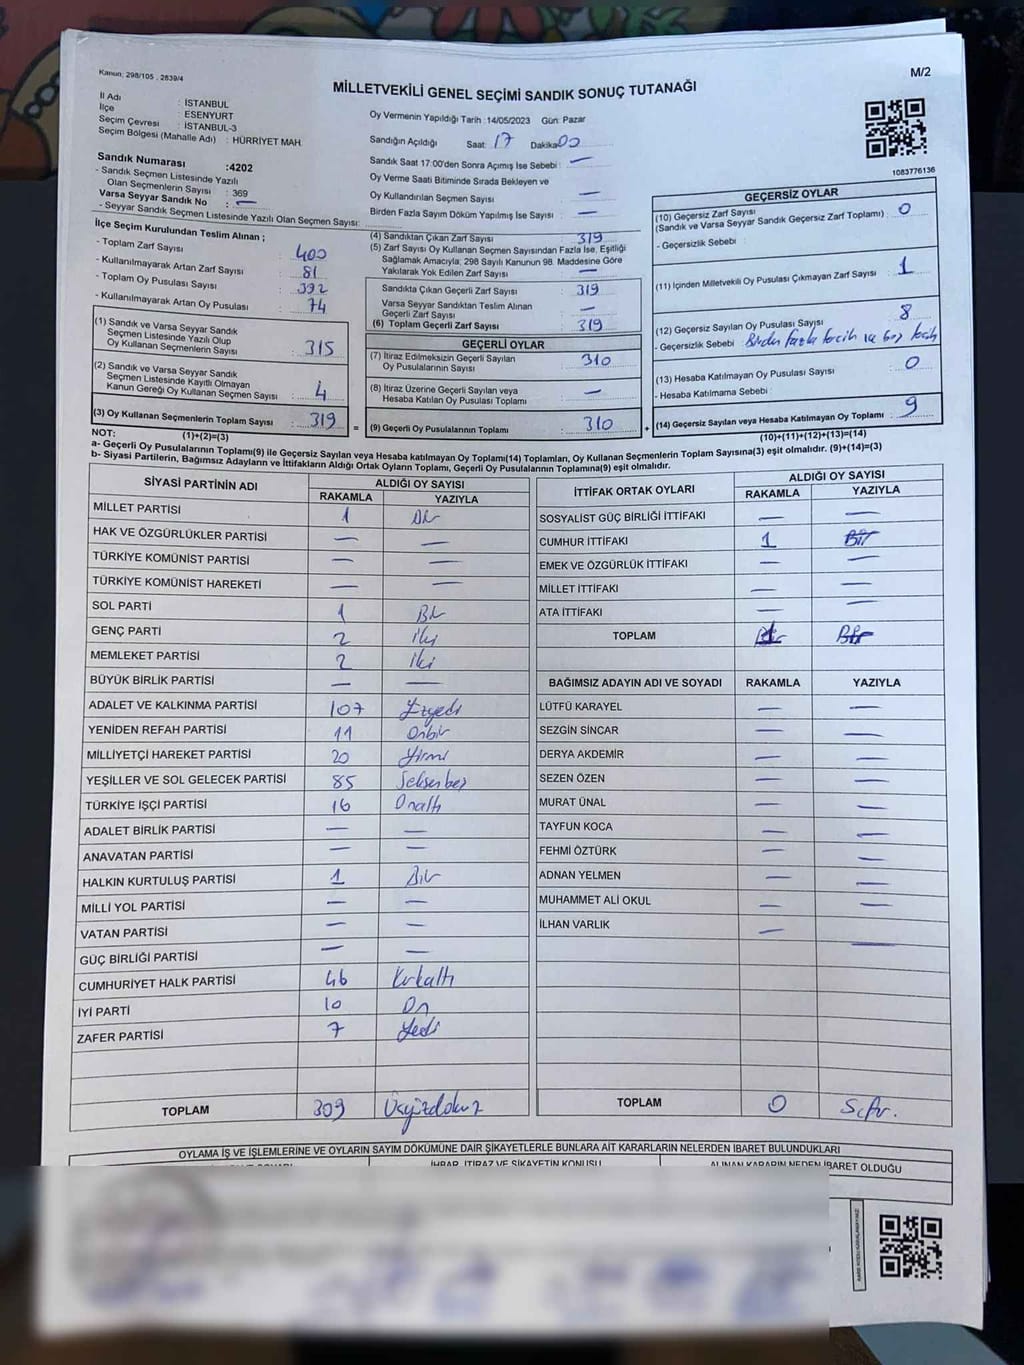 Kanun: 298/105 , 2839/4
M/2
MİLLETVEKİLİ GENEL SEÇİMİ SANDIK SONUÇ TUTANAĞI
İl Adı : İSTANBUL
İlçe : ESENYURT
Seçim Çevresi : İSTANBUL-3
Seçim Bölgesi (Mahalle Adı) : HÜRRİYET MAH.
Oy Vermenin Yapıldığı Tarih :14/05/2023 Gün: Pazar
Sandığın Açıldığı Saat: 17 Dakika: 00
Sandık Saat 17:00'den Sonra Açılmış İse Sebebi : —
Oy Verme Saati Bitiminde Sırada Bekleyen ve
Oy Kullandırılan Seçmen Sayısı : —
Birden Fazla Sayım Döküm Yapılmış İse Sayısı : —
1083776136
Sandık Numarası :4202
- Sandık Seçmen Listesinde Yazılı
Olan Seçmenlerin Sayısı : 369
Varsa Seyyar Sandık No : —
- Seyyar Sandık Seçmen Listesinde Yazılı Olan Seçmen Sayısı:
İlçe Seçim Kurulundan Teslim Alınan ;
- Toplam Zarf Sayısı : 400
- Kullanılmayarak Artan Zarf Sayısı : 81
- Toplam Oy Pusulası Sayısı : 392
- Kullanılmayarak Artan Oy Pusulası : 74
(1) Sandık ve Varsa Seyyar Sandık
Seçmen Listesinde Yazılı Olup
Oy Kullanan Seçmenlerin Sayısı : 315
(2) Sandık ve Varsa Seyyar Sandık
Seçmen Listesinde Kayıtlı Olmayan
Kanun Gereği Oy Kullanan Seçmen Sayısı : 4
(3) Oy Kullanan Seçmenlerin Toplam Sayısı : 319
(4) Sandıktan Çıkan Zarf Sayısı : 319
(5) Zarf Sayısı Oy Kullanan Seçmen Sayısından Fazla İse, Eşitliği
Sağlamak Amacıyla; 298 Sayılı Kanunun 98. Maddesine Göre
Yakılarak Yok Edilen Zarf Sayısı : —
Sandıkta Çıkan Geçerli Zarf Sayısı : 319
Varsa Seyyar Sandıktan Teslim Alınan
Geçerli Zarf Sayısı : —
(6) Toplam Geçerli Zarf Sayısı : 319
GEÇERLİ OYLAR
(7) İtiraz Edilmeksizin Geçerli Sayılan
Oy Pusulalarının Sayısı : 310
(8) İtiraz Üzerine Geçerli Sayılan veya
Hesaba Katılan Oy Pusulası Toplamı : —
= (9) Geçerli Oy Pusulalarının Toplamı : 310 +
GEÇERSİZ OYLAR
(10) Geçersiz Zarf Sayısı
(Sandık ve Varsa Seyyar Sandık Geçersiz Zarf Toplamı) : 0
- Geçersizlik Sebebi :
(11) İçinden Milletvekili Oy Pusulası Çıkmayan Zarf Sayısı : 1
(12) Geçersiz Sayılan Oy Pusulası Sayısı : 8
- Geçersizlik Sebebi Birden fazla tercih
(13) Hesaba Katılmayan Oy Pusulası Sayısı : 0
- Hesaba Katılmama Sebebi :
(14) Geçersiz Sayılan veya Hesaba Katılmayan Oy Toplamı : 9
NOT: (1)+(2)=(3) (10)+(11)+(12)+(13)=(14)
a- Geçerli Oy Pusulalarının Toplamı(9) ile Geçersiz Sayılan veya Hesaba katılmayan Oy Toplamı(14) Toplamları, Oy Kullanan Seçmenlerin Toplam Sayısına(3) eşit olmalıdır. (9)+(14)=(3)
b- Siyasi Partilerin, Bağımsız Adayların ve İttifakların Aldığı Ortak Oyların Toplamı, Geçerli Oy Pusulalarının Toplamına(9) eşit olmalıdır.
SİYASİ PARTİNİN ADI ALDIĞI OY SAYISI
RAKAMLA YAZIYLA
MİLLET PARTİSİ 1 Bir
HAK VE ÖZGÜRLÜKLER PARTİSİ — —
TÜRKİYE KOMÜNİST PARTİSİ — —
TÜRKİYE KOMÜNİST HAREKETİ — —
SOL PARTİ 1 Bir
GENÇ PARTİ 2 İki
MEMLEKET PARTİSİ 2 İki
BÜYÜK BİRLİK PARTİSİ — —
ADALET VE KALKINMA PARTİSİ 107 Yüzyedi
YENİDEN REFAH PARTİSİ 11 Onbir
MİLLİYETÇİ HAREKET PARTİSİ 20 Yirmi
YEŞİLLER VE SOL GELECEK PARTİSİ 85 Seksenbeş
TÜRKİYE İŞÇİ PARTİSİ 16 Onaltı
ADALET BİRLİK PARTİSİ — —
ANAVATAN PARTİSİ — —
HALKIN KURTULUŞ PARTİSİ 1 Bir
MİLLİ YOL PARTİSİ — —
VATAN PARTİSİ — —
GÜÇ BİRLİĞİ PARTİSİ — —
CUMHURİYET HALK PARTİSİ 46 Kırkaltı
İYİ PARTİ 10 On
ZAFER PARTİSİ 7 Yedi
TOPLAM 309 Üçyüzdokuz
İTTİFAK ORTAK OYLARI ALDIĞI OY SAYISI
RAKAMLA YAZIYLA
SOSYALİST GÜÇ BİRLİĞİ İTTİFAKI — —
CUMHUR İTTİFAKI 1 Bir
EMEK VE ÖZGÜRLÜK İTTİFAKI — —
MİLLET İTTİFAKI — —
ATA İTTİFAKI — —
TOPLAM 1 Bir
BAĞIMSIZ ADAYIN ADI VE SOYADI RAKAMLA YAZIYLA
LÜTFÜ KARAYEL — —
SEZGİN SİNCAR — —
DERYA AKDEMİR — —
SEZEN ÖZEN — —
MURAT ÜNAL — —
TAYFUN KOCA — —
FEHMİ ÖZTÜRK — —
ADNAN YELMEN — —
MUHAMMET ALİ OKUL — —
İLHAN VARLIK — —
TOPLAM 0 Sıfır.
OYLAMA İŞ VE İŞLEMLERİNE VE OYLARIN SAYIM DÖKÜMÜNE DAİR ŞİKAYETLERLE BUNLARA AİT KARARLARIN NELERDEN İBARET BULUNDUKLARI
İHBAR, İTİRAZ VE ŞİKAYETİN KONUSU ALINAN KARARIN NEDEN İBARET OLDUĞU